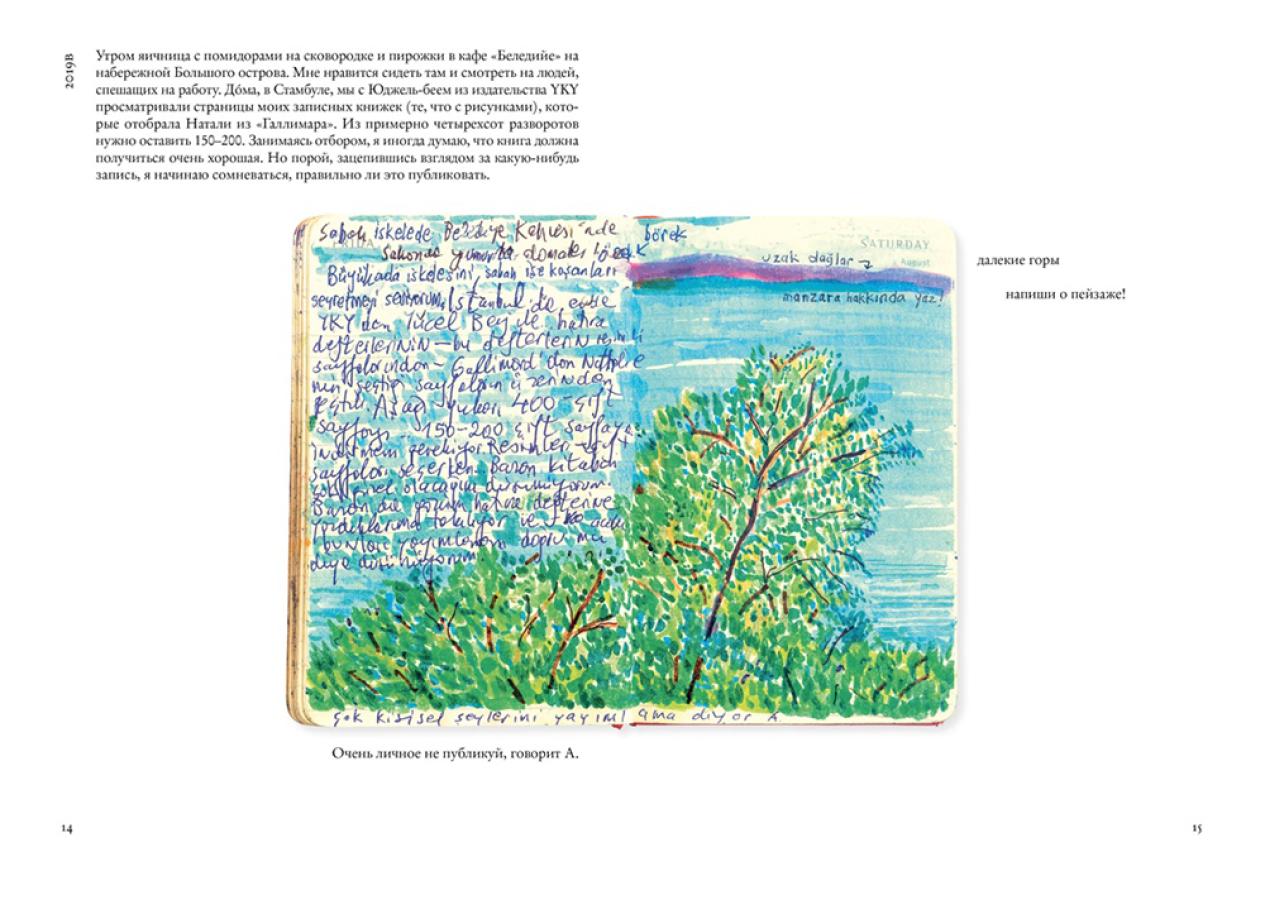 2019в
Утром яичница с помидорами на сковородке и пирожки в кафе «Беледийе» на
набережной Большого острова. Мне нравится сидеть там и смотреть на людей,
спешащих на работу. До́ма, в Стамбуле, мы с Юджель-беем из издательства YKY
просматривали страницы моих записных книжек (те, что с рисунками), кото-
рые отобрала Натали из «Галлимара». Из примерно четырехсот разворотов
нужно оставить 150–200. Занимаясь отбором, я иногда думаю, что книга должна
получиться очень хорошая. Но порой, зацепившись взглядом за какую-нибудь
запись, я начинаю сомневаться, правильно ли это публиковать.
Sabah iskelede Belediye Kahvesi'nde börek
Sahanda yumurta domates börek
SATURDAY
uzak dağlar
August
Büyükada iskelesini, sabah işe koşanları
manzara hakkında yaz!
seyretmeyi seviyorum. İstanbul'da evde
YKY'dan Yücel Bey ile hatıra
defterlerinin – bu defterlerin resimli
sayfalarından – Gallimard'dan Nathalie
nin seçtiği sayfaların üzerinden
geçtik. Aşağı yukarı 400 çift
sayfayı 150–200 çift sayfaya
indirmem gerekiyor. Resimleri
sayfaları seçerken Bazen kitabın
çok güzel olacağını düşünüyorum.
Bazen de gözüm hatıra defterine
yazdıklarıma takılıyor ve
bunları yayımlamam doğru mu
diye düşünüyorum.
çok kişisel şeylerini yayımlama diyor A.
далекие горы
напиши о пейзаже!
Очень личное не публикуй, говорит А.
14
15